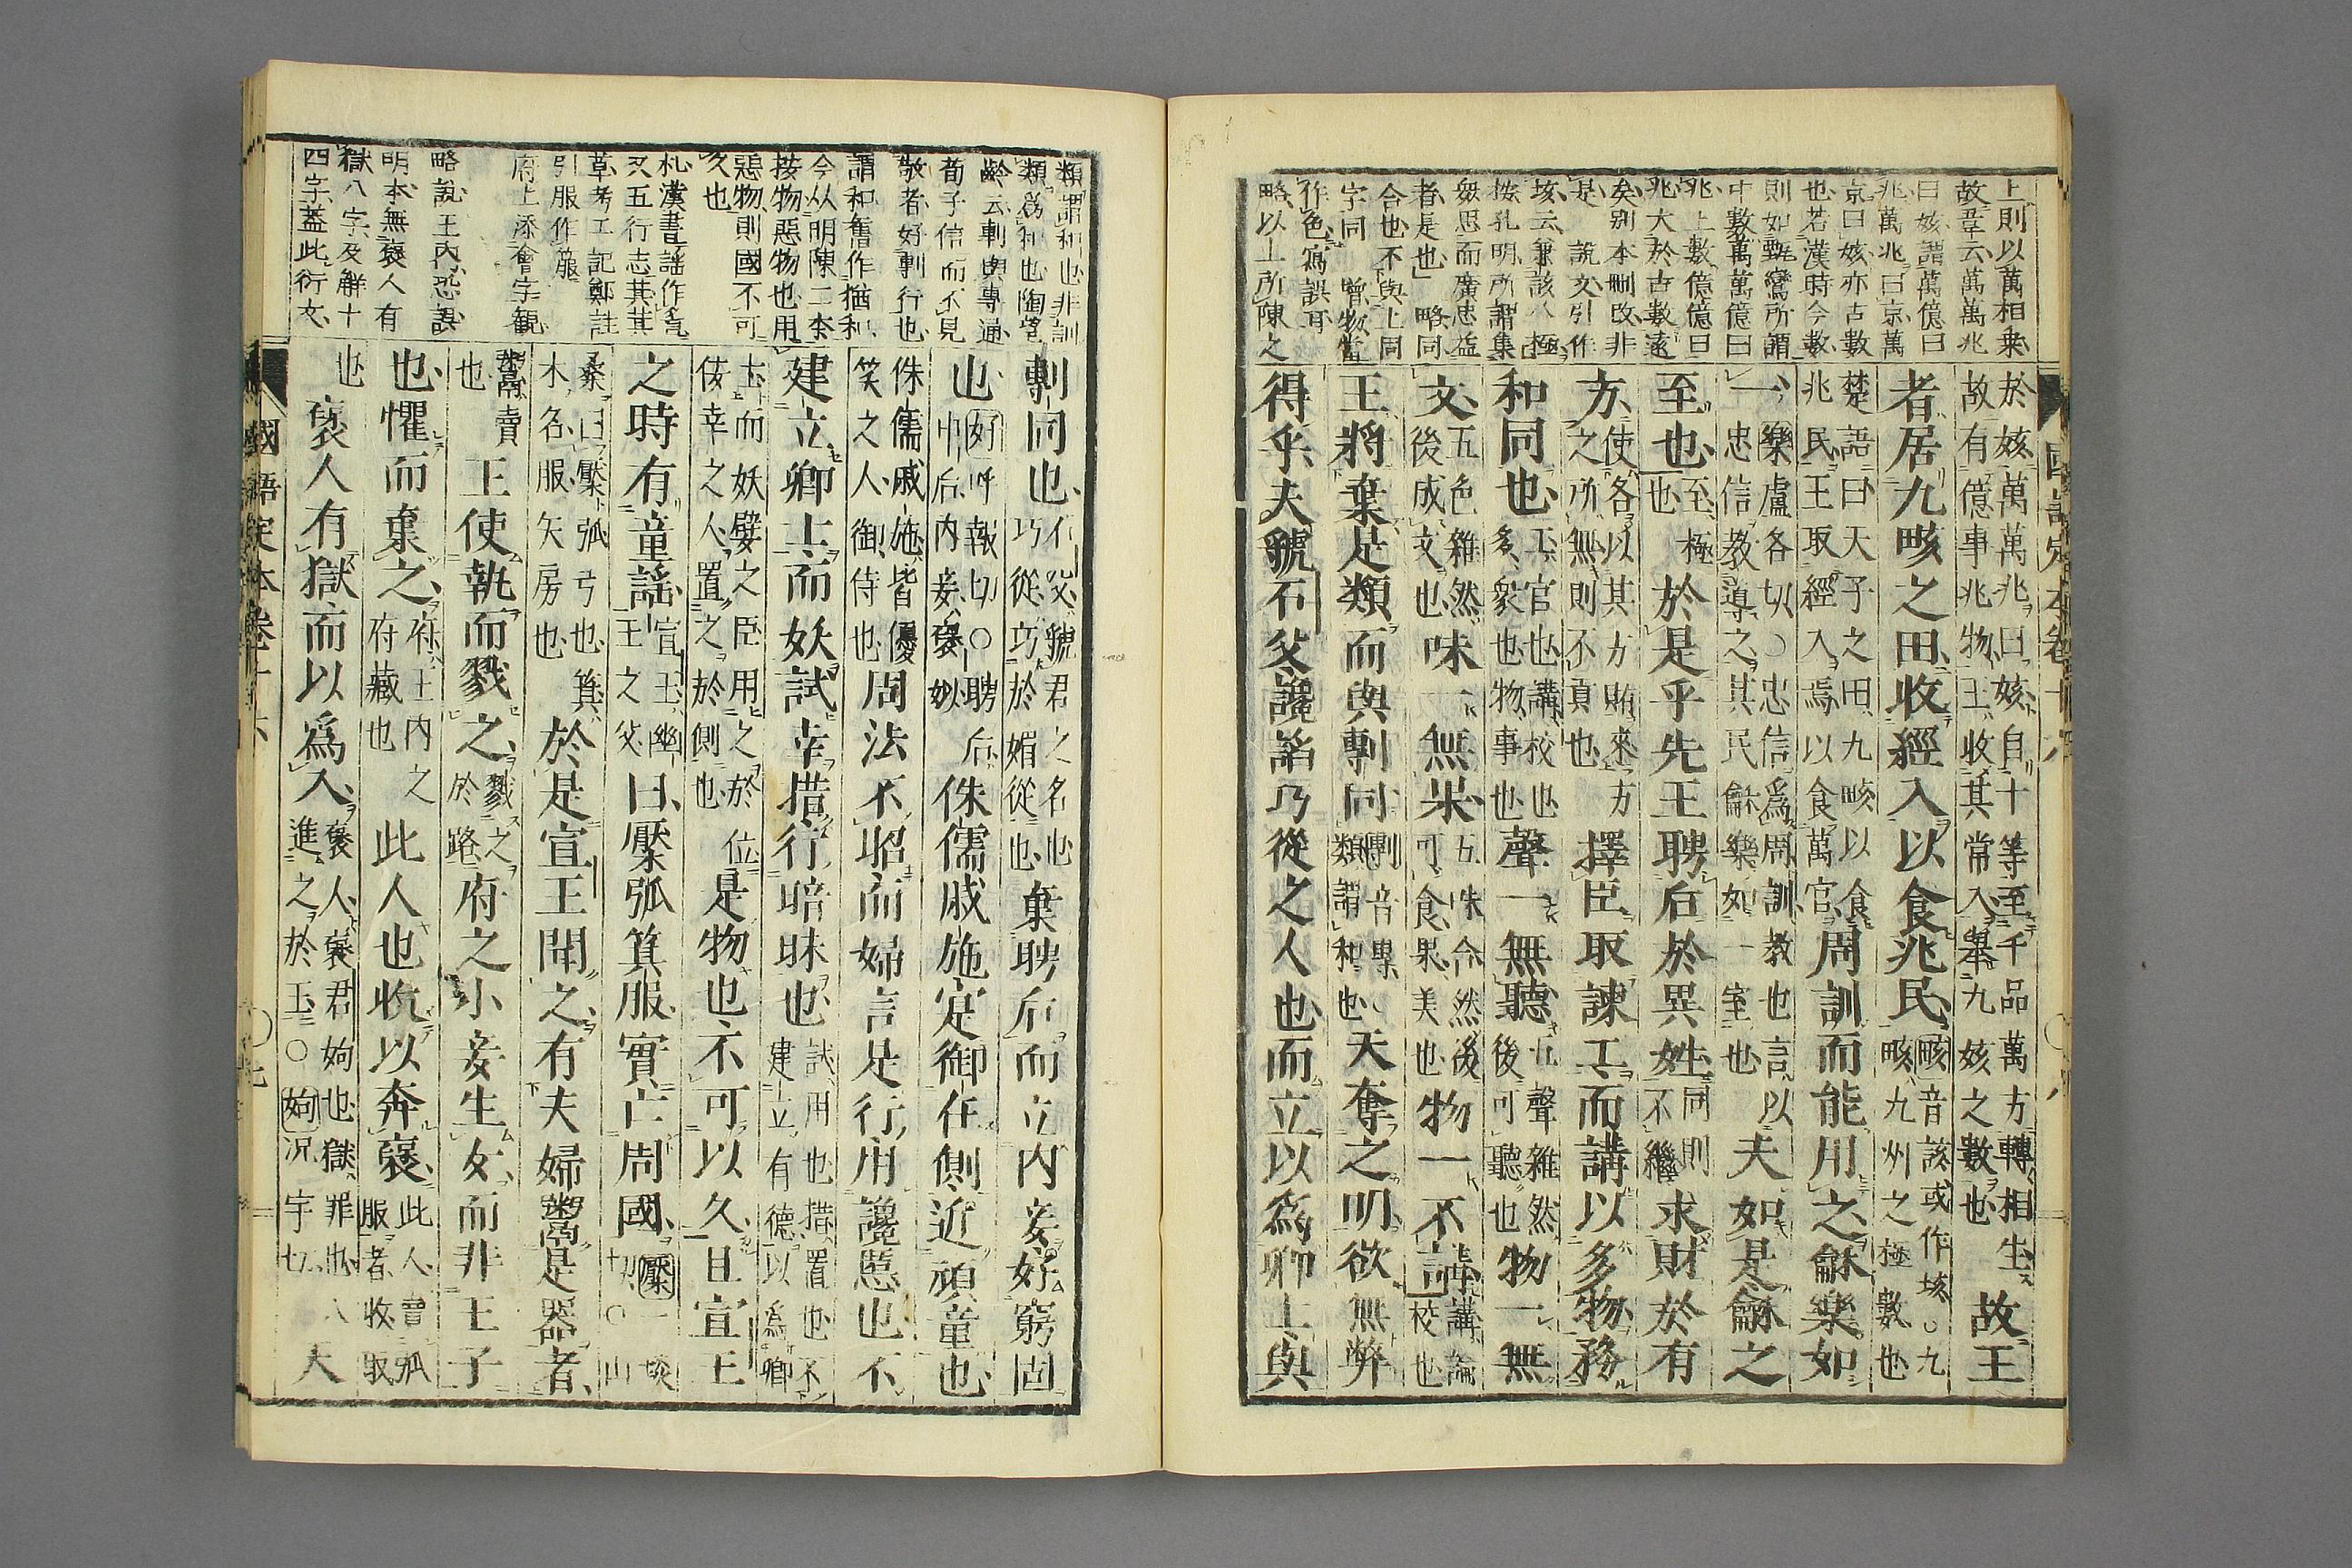 上則以萬相乗
故韋云萬萬兆
曰姟謂萬億曰
兆萬兆曰京萬
京曰姟亦古數
也若漢時今數
則如甄鸞所謂
中數萬萬億曰
兆上數億億曰
兆大於古數遠
矣別本刪改非
是 說文引作
垓云兼該八極
按孔明所謂集
衆思而廣忠益
者是也 略同
合也不與上同
字同 嘗物當
作色寫誤耳
略以上所陳之
於姟萬萬兆曰姟自十等至千品萬方轉相生
故有億事兆物王收其常入舉九姟之數也 故王
者居九畡之田收經入以食兆民 畡音該或作垓○九
畡九州之極數也
楚語曰天子之田九畡以食
兆民王取經入焉以食萬官 周訓而能用之龢樂如
一 樂盧各切○忠信爲周訓教也言以
忠信教導之其民龢樂如一室也 夫如是龢之
至也 至極
也 於是乎先王聘后於異姓 同則
不繼 求財於有
方 使各以其方賄來方
之所無則不貢也 擇臣取諫工而講以多物務
和同也 工官也講校也
多衆也物事也 聲一無聽 五聲雜然
後可聽也 物一無
文 五色雜然
後成文也 味一無果 五味合然後
可食果美也 物一不講 講論
校也
王將棄是類而與剸同 剸音專○
類謂和也 天奪之明欲無弊
得乎夫虢石父讒諂巧從之人也而立以爲卿士與
類謂和也非訓
類爲和也陶望
齡云剸與專通
荀子信而不見
敬者好剸行也
謂和舊作猶和
今从明陳二本
按物惡物也用
惡物則國不可
久也
札漢書謠作竟
災五行志其其
草考工記鄭註
引服作箙
府上添會字観
略說王内恐誤
明本無襃人有
獄八字及解十
四字蓋此衍文
剸同也 石父虢君之名也
巧從巧於媚從也 棄聘后而立内妾好窮固
也 好呼報切○聘后
申后内妾襃姒 侏儒戚施寔御在側近頑童也
侏儒戚施皆優
笑之人御侍也 周法不昭而婦言是行用讒慝也不
建立卿士而妖試幸措行暗昧也 試用也措置也不
建立有德以爲卿
士而妖嬖之臣用之於位
侫幸之人置之於側也 是物也不可以久且宣王
之時有童謠 宣王幽
王之父 曰檿弧箕服實亡周國 檿一琰
切○山
桑曰檿弧弓也箕
木名服矢房也 於是宣王聞之有夫婦鬻是器者
鬻賣
也 王使執而戮之 戮之
於路 府之小妾生女而非王子
也懼而棄之 府王内之
府藏也 此人也收以奔襃 此人賣弧
服者收取
也 襃人有獄而以爲入 襃人襃君姁也獄罪也入
進之於王○姁况宇切 天
國語定本卷十六